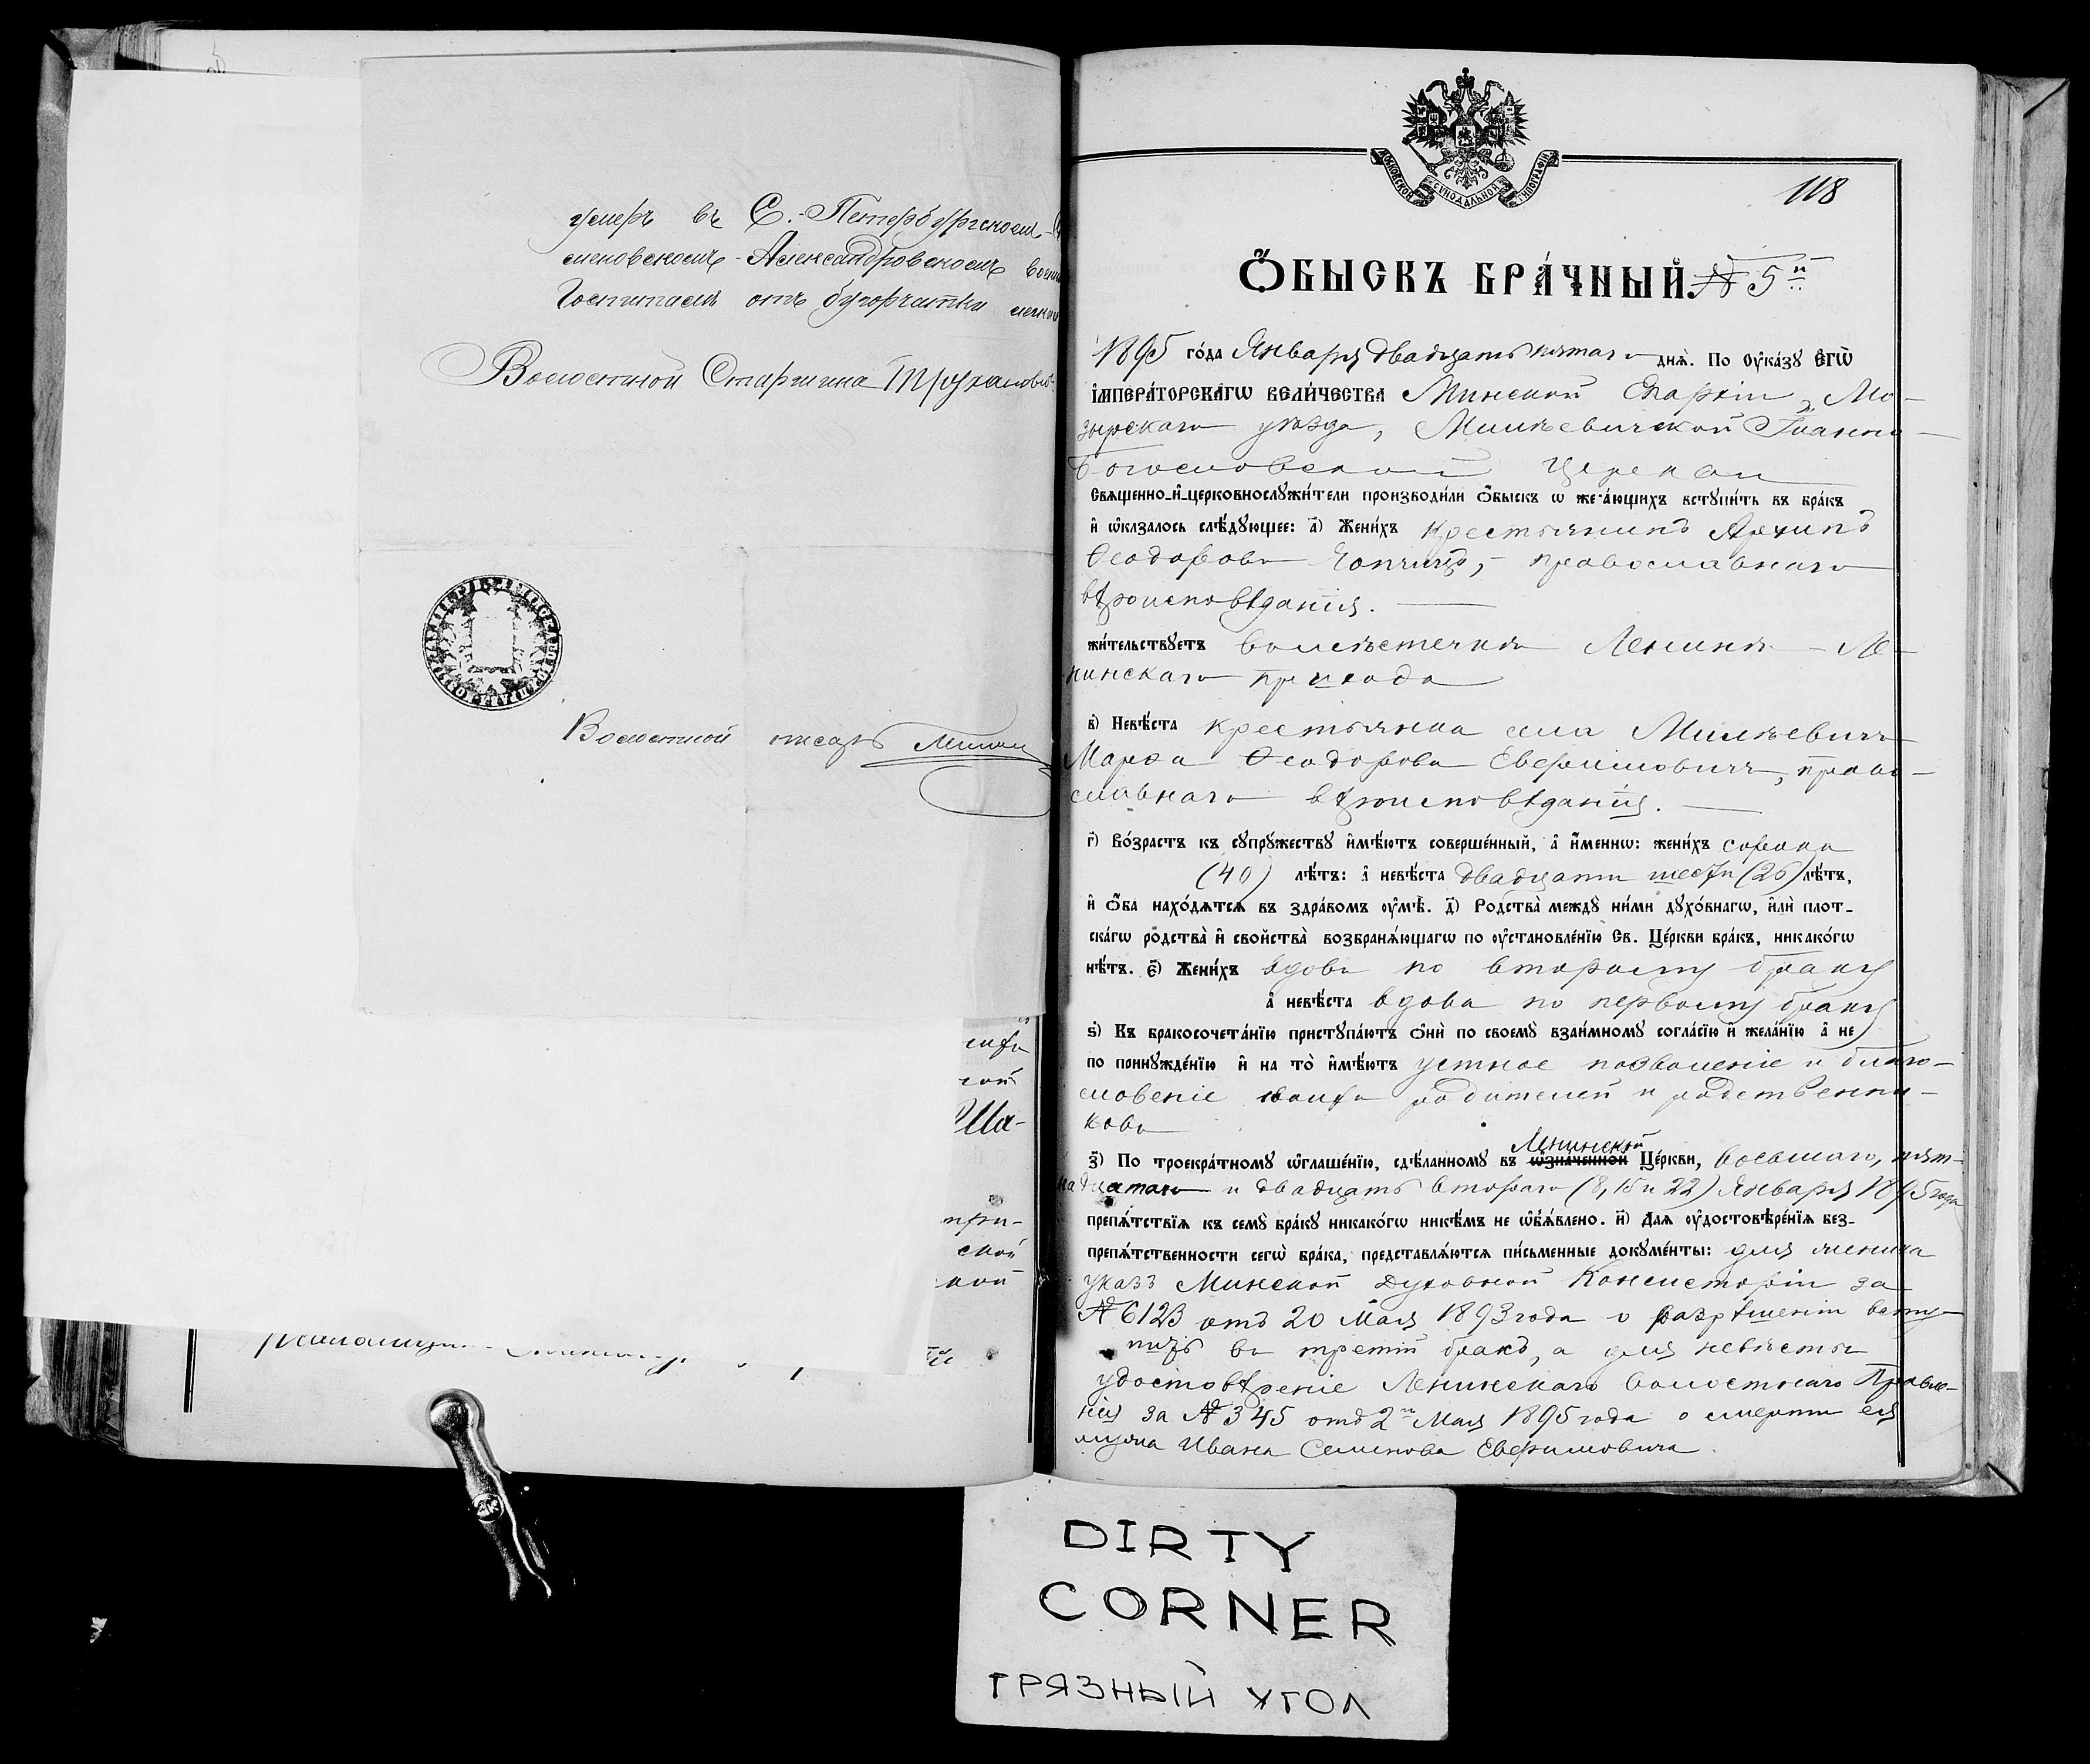 умеръ въ С.-Петербургскомъ
меновскомъ-Александровскомъ
Госпиталѣ отъ бугорчатки
Волостной Старшина
Волостной писарь
118
МОСКОВСКОЙ СѴНОДАЛЬНОЙ ТИПОГРАФІИ
Ѻ҆БЫСКЪ БРА́ЧНЫЙ. № 5й
1895 го́да Января двадцать пятаго днѧ̀. По ᲂу҆ка́зꙋ Є҆ГѠ̀
І҆МПЕРА́ТОРСКАГѠ ВЕЛИ́ЧЕСТВА Минской Епархіи, Мо-
зырскаго уѣзда, Милѣевичской Іоанно-
Богословской церкви
Свѧщенно-и҆-церковнослꙋжи́тели производи́ли ѻ҆́быскъ ѡ҆ жела́ющихъ встꙋпи́ть въ бра́къ
и҆ ѡ҆каза́лось слѣ́дꙋющее: а҃) Жени́хъ крестьянинъ Архипъ
Ѳеодоровъ православнаго
вѣроисповѣданія.
жи́тельствꙋетъ въ мѣстечкѣ Ленинѣ - Ле-
нинскаго прихода
в҃) Невѣ́ста крестьянка села Милѣевичъ
Марѳа Ѳеодорова Евфимовичъ, право-
славнаго вѣроисповѣданія.
г҃) Во́зрастъ къ сꙋпрꙋ́жествꙋ и҆мѣ́ютъ соверше́нный, а҆ и҆́менно: жени́хъ сорока
(40) лѣ́тъ: а҆ невѣ́ста двадцати шести (26) лѣ́тъ,
и҆ ѻ҆́ба нахо́дѧтсѧ въ здра́вомъ ᲂу҆мѣ̀. д҃) Родства̀ междꙋ ни́ми дꙋхо́внагѡ, и҆лѝ плот-
ска́гѡ родства̀ и҆ сво́йства возбранѧ́ющагѡ по ᲂу҆становле́нїю Св. Це́ркви бра́къ, никако́гѡ
нѣ́тъ. є҃) Жени́хъ вдовъ по второму браку
а҆ невѣ́ста вдова по первому браку
ѕ҃) Къ бракосочета́нїю пристꙋпа́ютъ ѻ҆нѝ по своемꙋ̀ взаи́мномꙋ согла́сїю и҆ жела́нїю а҆ не
по принꙋжде́нїю и҆ на то̀ и҆мѣ́ютъ устное позволеніе и благо-
словеніе своихъ родителей и родственни-
ковъ
Ленинской
з҃) По троекра́тномꙋ ѡ҆глаше́нїю, сдѣ́ланномꙋ въ ѡ҆зна́ченной Це́ркви, восьмаго, пят-
надцатаго и двадцать втораго (8, 15 и 22) Января 1895 года
препѧ́тствїѧ къ семꙋ̀ бра́кꙋ никако́гѡ никѣ́мъ не ѡ҆б̾ѧ́влено. и҃) Для ᲂу҆достовѣре́нїѧ без-
препѧ́тственности сегѡ̀ бра́ка, представлѧ́ютсѧ пи́сьменные докꙋме́нты: для жениха
указъ Минской Духовной Консисторіи за
№ 6123 отъ 20 Мая 1893 года о разрѣшеніи всту-
пить въ третій бракъ, а для невѣсты
удостовѣреніе Ленинскаго волостнаго Правле-
нія за № 345 отъ 2го Мая 1895 года о смерти ея
мужа Ивана Семенова Евфимовича.
DIRTY
CORNER
ГРЯЗНЫЙ УГОЛ